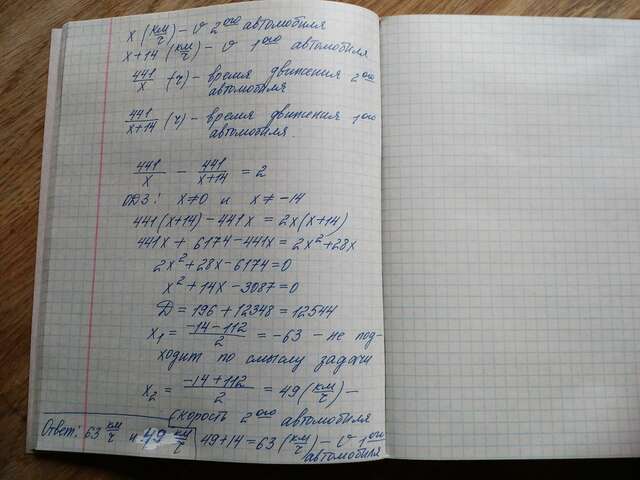 x (км/ч) – v 2ого автомобиля
x+14 (км/ч) – v 1ого автомобиля
441/x (ч) – время движения 2ого
автомобиля
441/x+14 (ч) – время движения 1ого
автомобиля.
441/x – 441/x+14 = 2
ОДЗ: x≠0 и x≠-14
441(x+14)-441x = 2x(x+14)
441x + 6174-441x = 2x²+28x
2x²+28x-6174=0
x²+14x-3087=0
D = 196+12348=12544
x₁ = -14-112/2 = -63 – не под-
ходит по смыслу задачи
x₂ = -14+112/2 = 49 (км/ч) –
скорость 2ого автомобиля
49+14=63 (км/ч) – v 1ого
автомобиля
Ответ: 63 км/ч и 49 км/ч